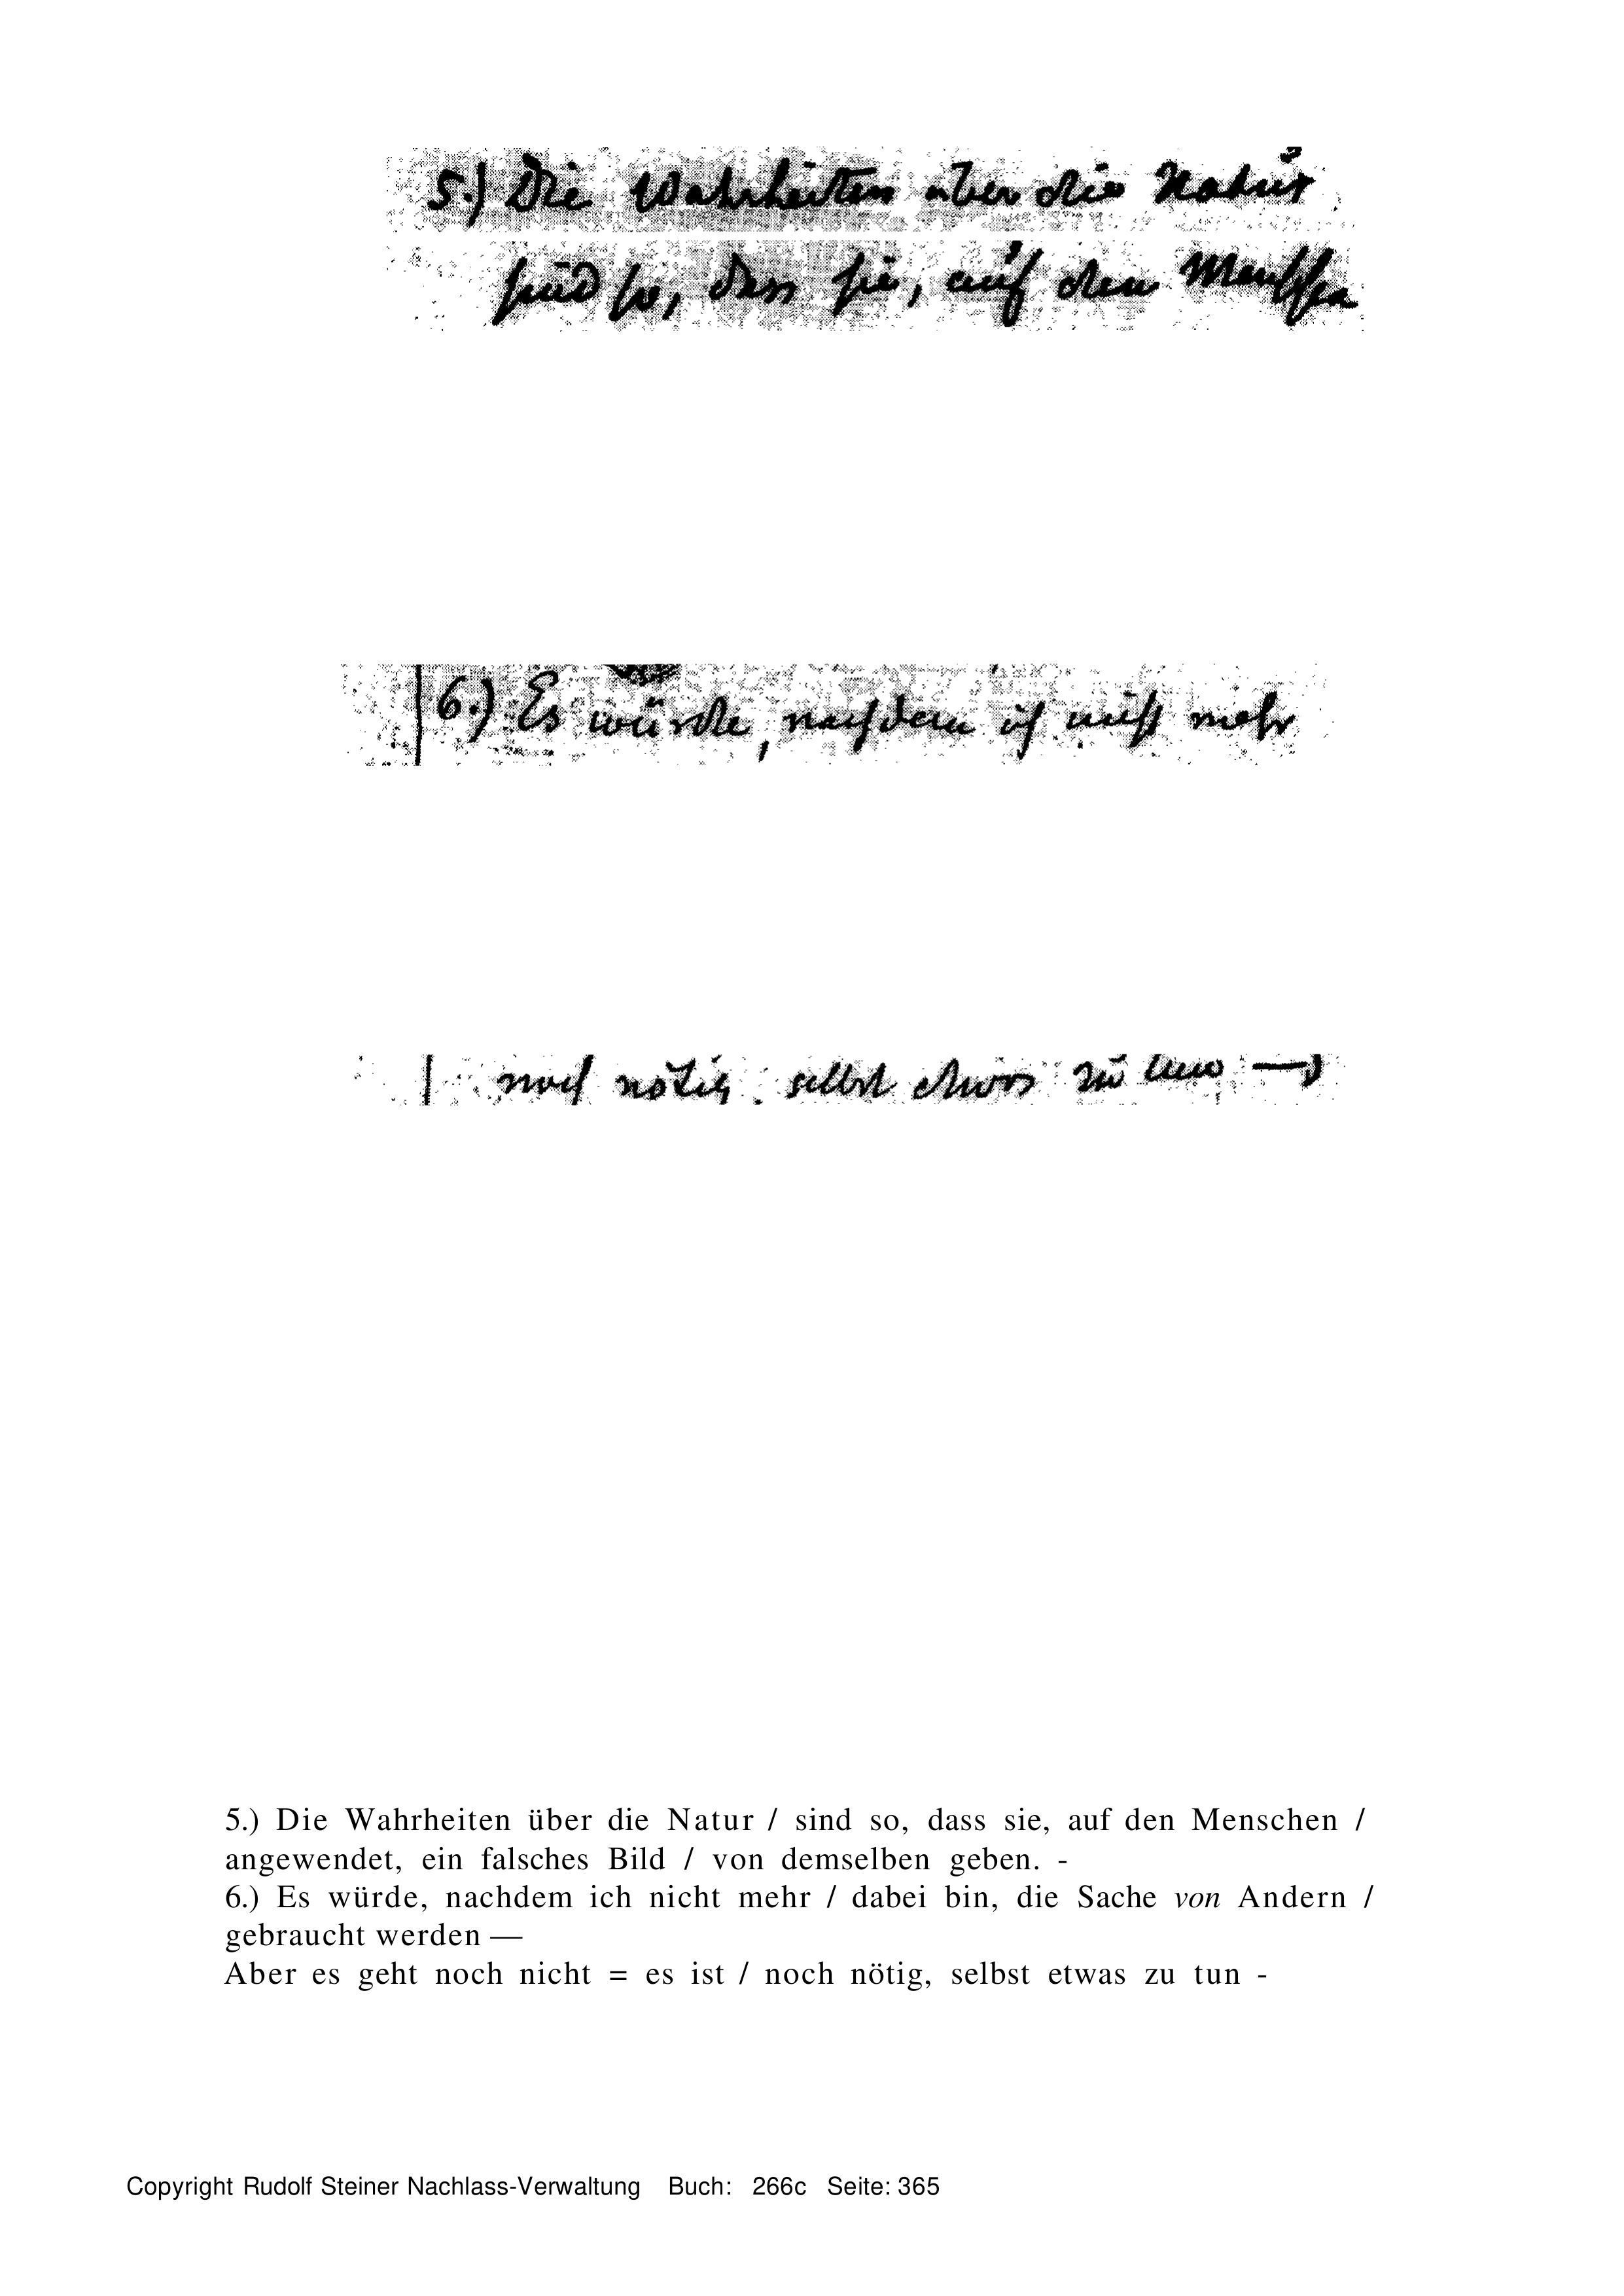 5.) Die Wahrheiten über die Natur
sind so, dass sie, auf den Menschen
6.) Es würde, nachdem ich nicht mehr
noch nötig, selbst etwas zu tun —
5.) Die Wahrheiten über die Natur / sind so, dass sie, auf den Menschen /
angewendet, ein falsches Bild / von demselben geben. -
6.) Es würde, nachdem ich nicht mehr / dabei bin, die Sache von Andern /
gebraucht werden —
Aber es geht noch nicht = es ist / noch nötig, selbst etwas zu tun -
Copyright Rudolf Steiner Nachlass-Verwaltung Buch: 266c Seite: 365